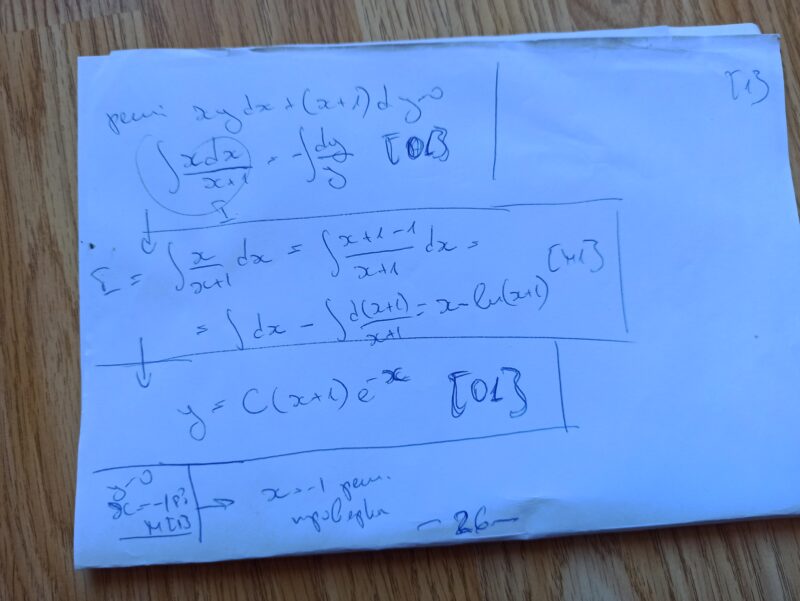 [1]
реш xydx+(x+1)dy=0
∫ xdx/(x+1) = -∫ dy/y [01]
I
I = ∫ x/(x+1) dx = ∫ (x+1-1)/(x+1) dx =
= ∫ dx - ∫ d(x+1)/(x+1) = x - ln(x+1) [М1]
y = C(x+1) e^-x [01]
y=0
x=-1 р?
М[1]
→ x=-1 реш.
проверка
-26-